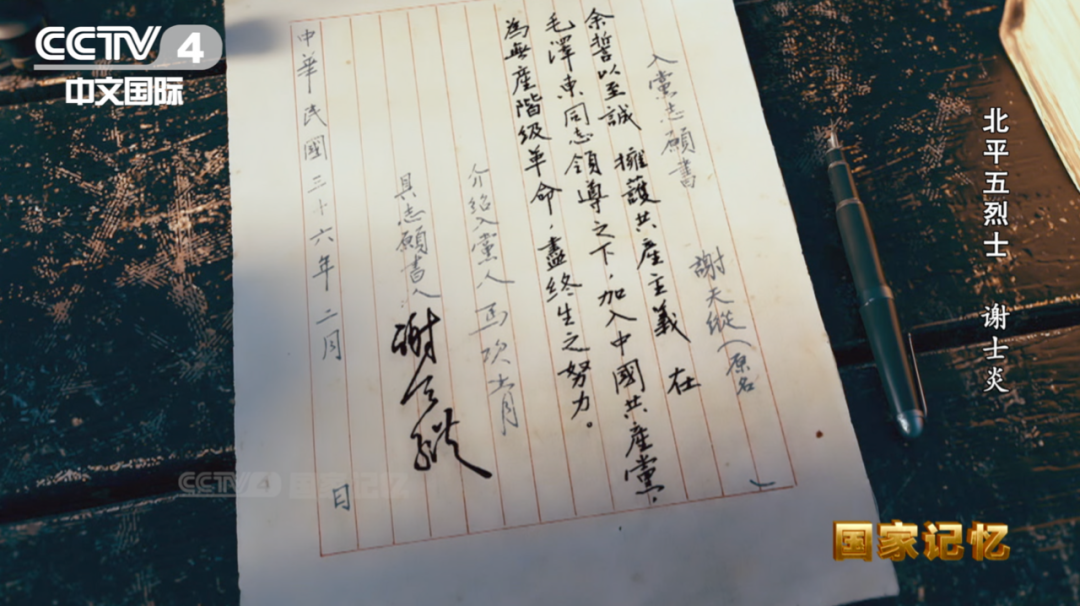 CCTV 4
中文国际
北平五烈士 谢士炎
入黨志願書 謝天縱（原名 ）
余誓以至誠 擁護共産主義 在
毛澤東同志領導之下，加入中國共産黨，
為無産階級革命，盡終生之努力。
介紹入黨人 馬
具志願書人 謝天縱
中華民國三十六年二月 日
CCTV4 国家记忆
国家记忆